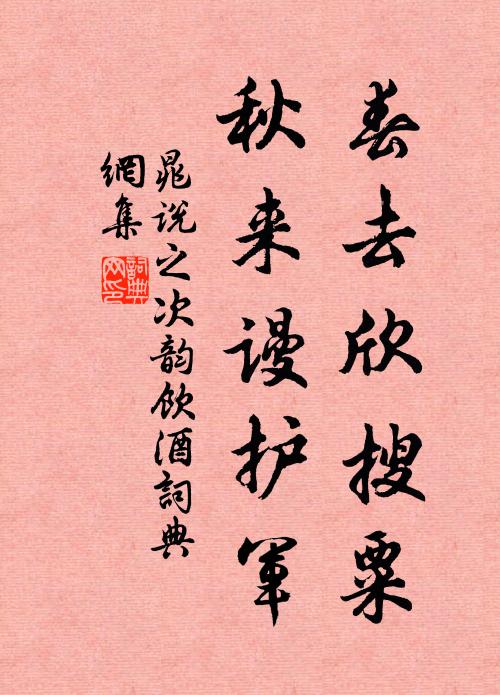 春去欣搜粟
秋来谩护军
晁说之次韵饮酒詞典
網集
詞典
网印